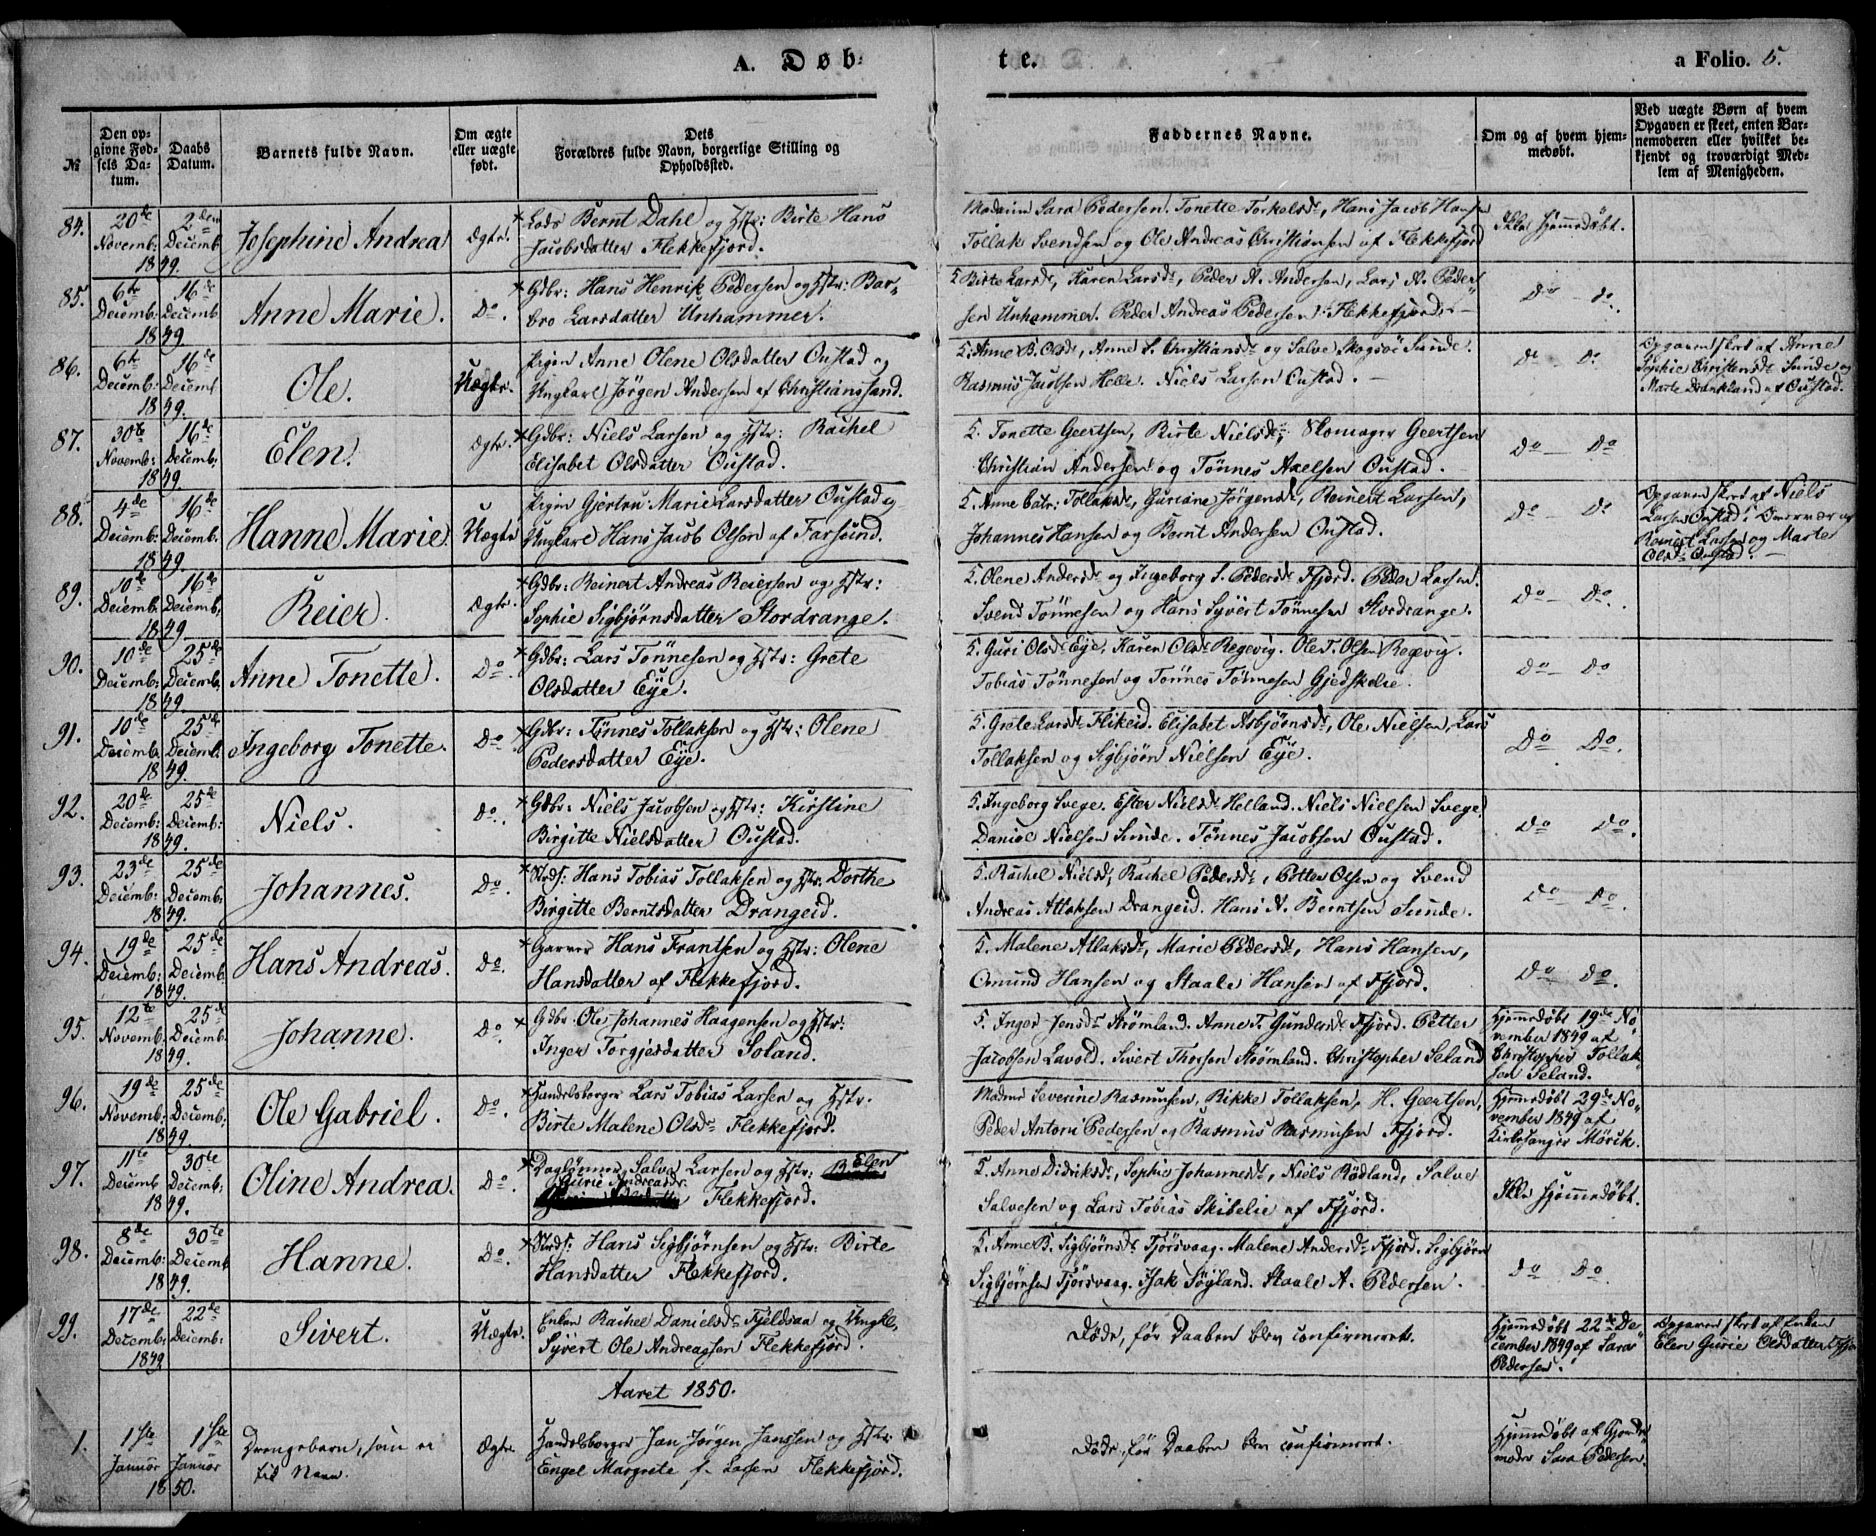 A. Døb-
te.
a Folio. 5.
№
Den op-
givne Fød-
sels Da-
tum.
Daabs
Datum.
Barnets fulde Navn.
Om ægte
eller uægte
født.
Dets
Forældres fulde Navn, borgerlige Stilling og
Opholdssted.
Faddernes Navne.
Om og af hvem hjem-
medøbt.
Ved uægte Børn af hvem
Opgaven er skeet, enten Bar-
nemoderen eller hvilket be-
kjendt og troværdigt Med-
lem af Menigheden.
84.
20de
Novemb:
1849.
2den
Decemb:
Josephine Andrea
Ægte.
Lods Bernt Dahl og Hstr: Birte Hans
Jacobsdatter Flekkefjord.
Madam Sara Pedersen. Tonette Torkelsdr, Hans Jacob Hansen
Tollak Svendsen og Ole Andreas Christiansen af Flekkefjord
Ikke hjemmedøbt.
85.
6te
Decemb:
1849.
16de
Decemb
Anne Marie.
Do.
Gdbr: Hans Henrik Pedersen og Hstr: Bar-
bro Larsdatter Unhammer.
5. Birte Larsdr, Karen Larsdr, Peder A. Andersen, Lars A. Peder-
sen Unhammer. Peder Andreas Pedersen Flekkefjord.
Do - do.
86.
6te
Decemb:
1849.
16de
Decemb
Ole.
Uægte.
Pigen Anne Olene Olsdatter Oustad og
Ungkarl Jørgen Andersen af Christianssand.
5. Anne B. Olsdr, Anne S. Christiansdr og Salve Skogsøe Sunde.
Rasmus Jacobsen Helle. Niels Larsen Oustad.
Do Do.
Opgaven skeet af Anne
Sophie Christensdr Sunde og
Marte Drankland af Oustad.
87.
30te
Novemb:
1849.
16de
Decemb.
Elen.
Ægte.
Gdbr: Niels Larsen og Hstr: Rachel
Elisabet Olsdatter Oustad.
5. Tonette Geertsen, Birte Nielsdr, Skomager Geertsen
Christian Andersen og Tönnes Axelsen Oustad.
Do - Do
88.
4de
Decemb:
1849.
16de
Decemb.
Hanne Marie
Uægte
Pigen Gjertru Marie Larsdatter Oustad og
Ungkarl Hans Jacob Olsen af Farsund.
5. Anne Catr: Tollaksdr, Guriane Jörgensdr, Reinert Larsen,
Johannes Hansen og Bernt Andersen Oustad.
Do - Do
Opgaven skeet af Niels
Larsen Oustad i Overvær af
Reinert Larsen og Marte
Olsdr Oustad.
89.
10de
Decemb.
1849
16de
Decemb:
Reier.
Ægte.
Gdbr. Reinert Andreas Reiersen og Hstr:
Sophie Sigbjørnsdatter Stordrange.
5. Olene Andersdr og Ingeborg S. Pedersdr Ffjord. Peder Larsen.
Svend Tönnesen og Hans Syvert Tönnesen Stordrange.
Do - Do.
90.
10de
Decemb:
1849.
25de
Decemb.
Anne Tonette.
Do.
Gdbr: Lars Tönnesen og Hstr: Grete
Olsdatter Eye.
5. Guri Olsdr Eye. Karen Olsdr Regevig. Ole T. Olsen Regevig.
Tobias Tönnesen og Tönnes Tönnesen Gjedskelie.
Do - Do
91.
10de
Decemb:
1849.
25de
Decemb.
Ingeborg Tonette.
Do.
Gdbr: Tönnes Tollaksen og Hstr: Olene
Pedersdatter Eye.
5. Grete Larsdr Flikeid. Elisabet Asbjörnsdr, Ole Nielsen, Lars
Tollaksen og Sigbjørn Nielsen Eye.
Do Do.
92.
20de
Decemb:
1849.
25de
Decemb:
Niels.
Do.
Gdbr: Niels Jacobsen og Hstr: Kirstine
Birgitte Nielsdatter Oustad.
5. Ingeborg Svege. Ester Nielsdr Helland. Niels Nielsen Svege.
Daniel Nielsen Sunde. Tönnes Jacobsen Oustad.
Do Do.
93.
23de
Decemb:
1849.
25de
Decemb:
Johannes.
Do.
Hans Tobias Tollaksen og Hstr. Dorthe
Birgitte Berntsdatter Drangeid.
5. Rachel Nielsdr, Rachel Pedersdr, Petter Olsen og Svend
Andreas Atlaksen Drangeid. Hans A. Berntsen Sunde.
Do - Do.
94.
19de
Decemb:
1849.
25de
Decemb:
Hans Andreas.
Do.
Garver Hans Frantsen og Hstr: Olene
Hansdatter af Flekkefjord.
5. Malene Atlaksdr, Marie Pedersdr, Hans Hansen,
Omund Hansen og Staale Hansen af Ffjord.
Do Do.
95.
12te
Novemb:
1849.
25de
Decemb.
Johanne.
Do.
Gdbr. Ole Johannes Haagensen og Hstr:
Inger Torgjesdatter Soland.
5. Inger Jensdr Strømland. Anne T. Gundersdr Ffjord. Petter
Jacobsen Lavold. Sivert Thorsen Strömland. Christopher Seland
Hjemmedøbt 19de No-
vember 1849 af
Christopher Tollak-
sen Seland.
96.
19de
Novemb:
1849.
25de
Decemb:
Ole Gabriel.
Do.
Handelsborger Lars Tobias Larsen og Hstr.
Birte Malene Olsdr Flekkefjord.
Madme Severine Rasmussen, Rikke Tollaksen, H. Geertsen,
Peder Antoni Pedersen og Rasmus Rasmussen Ffjord.
Hjemmedøbt 29de No-
vember 1849 af
Kirkesanger Mørck.
97.
11te
Decemb
1849.
30te
Decemb:
Oline Andrea.
Do.
Daglønner Salve Larsen og Hstr: Elen
Gurie Andreasdr.
Flekkefjord.
5. Anne Didriksdr, Sophie Johannesdr, Niels Rödland, Salve
Salvesen og Lars Tobias Skibelie af Ffjord.
Ikke hjemmedøbt.
98.
8de
Decemb:
1849.
30te
Decemb
Hanne.
Do.
Hans Sigbjørnsen og Hstr: Birte
Hansdatter Flekkefjord.
5. Anne B. Sigbjørnsdr Tjörsvaag. Malene Andersdr Ffjord. Sigbjørn
Sigbjørnsen Tjörsvaag. Isak Søyland. Staale A. Pedersen.
Do Do.
99.
17de
Decemb:
1849
22de
Decemb:
Sivert.
Uægte.
Enken Rachel Danielsdr Fjeldsaa og Ungkl.
Syvert Ole Andreassen Flekkefjord.
Døde, før Daaben blev confirmeret.
Hjemmedøbt 22de De-
cember 1849 af Sara
Pedersen.
Opgaven skeet af Enken
Elen Gurie Olsdatter Ffjor
Aaret 1850.
1.
1ste
Januar
1850.
1ste
Januar
Drengebarn, som ei
fik Navn.
Ægte.
Handelsborger Jan Jørgen Janssen og Hstr.
Engel Margrete f. Larsen Flekkefjord.
Døde, før Daaben blev confirmeret.
Hjemmedøbt af Gjorde-
moder Sara Pedersen.